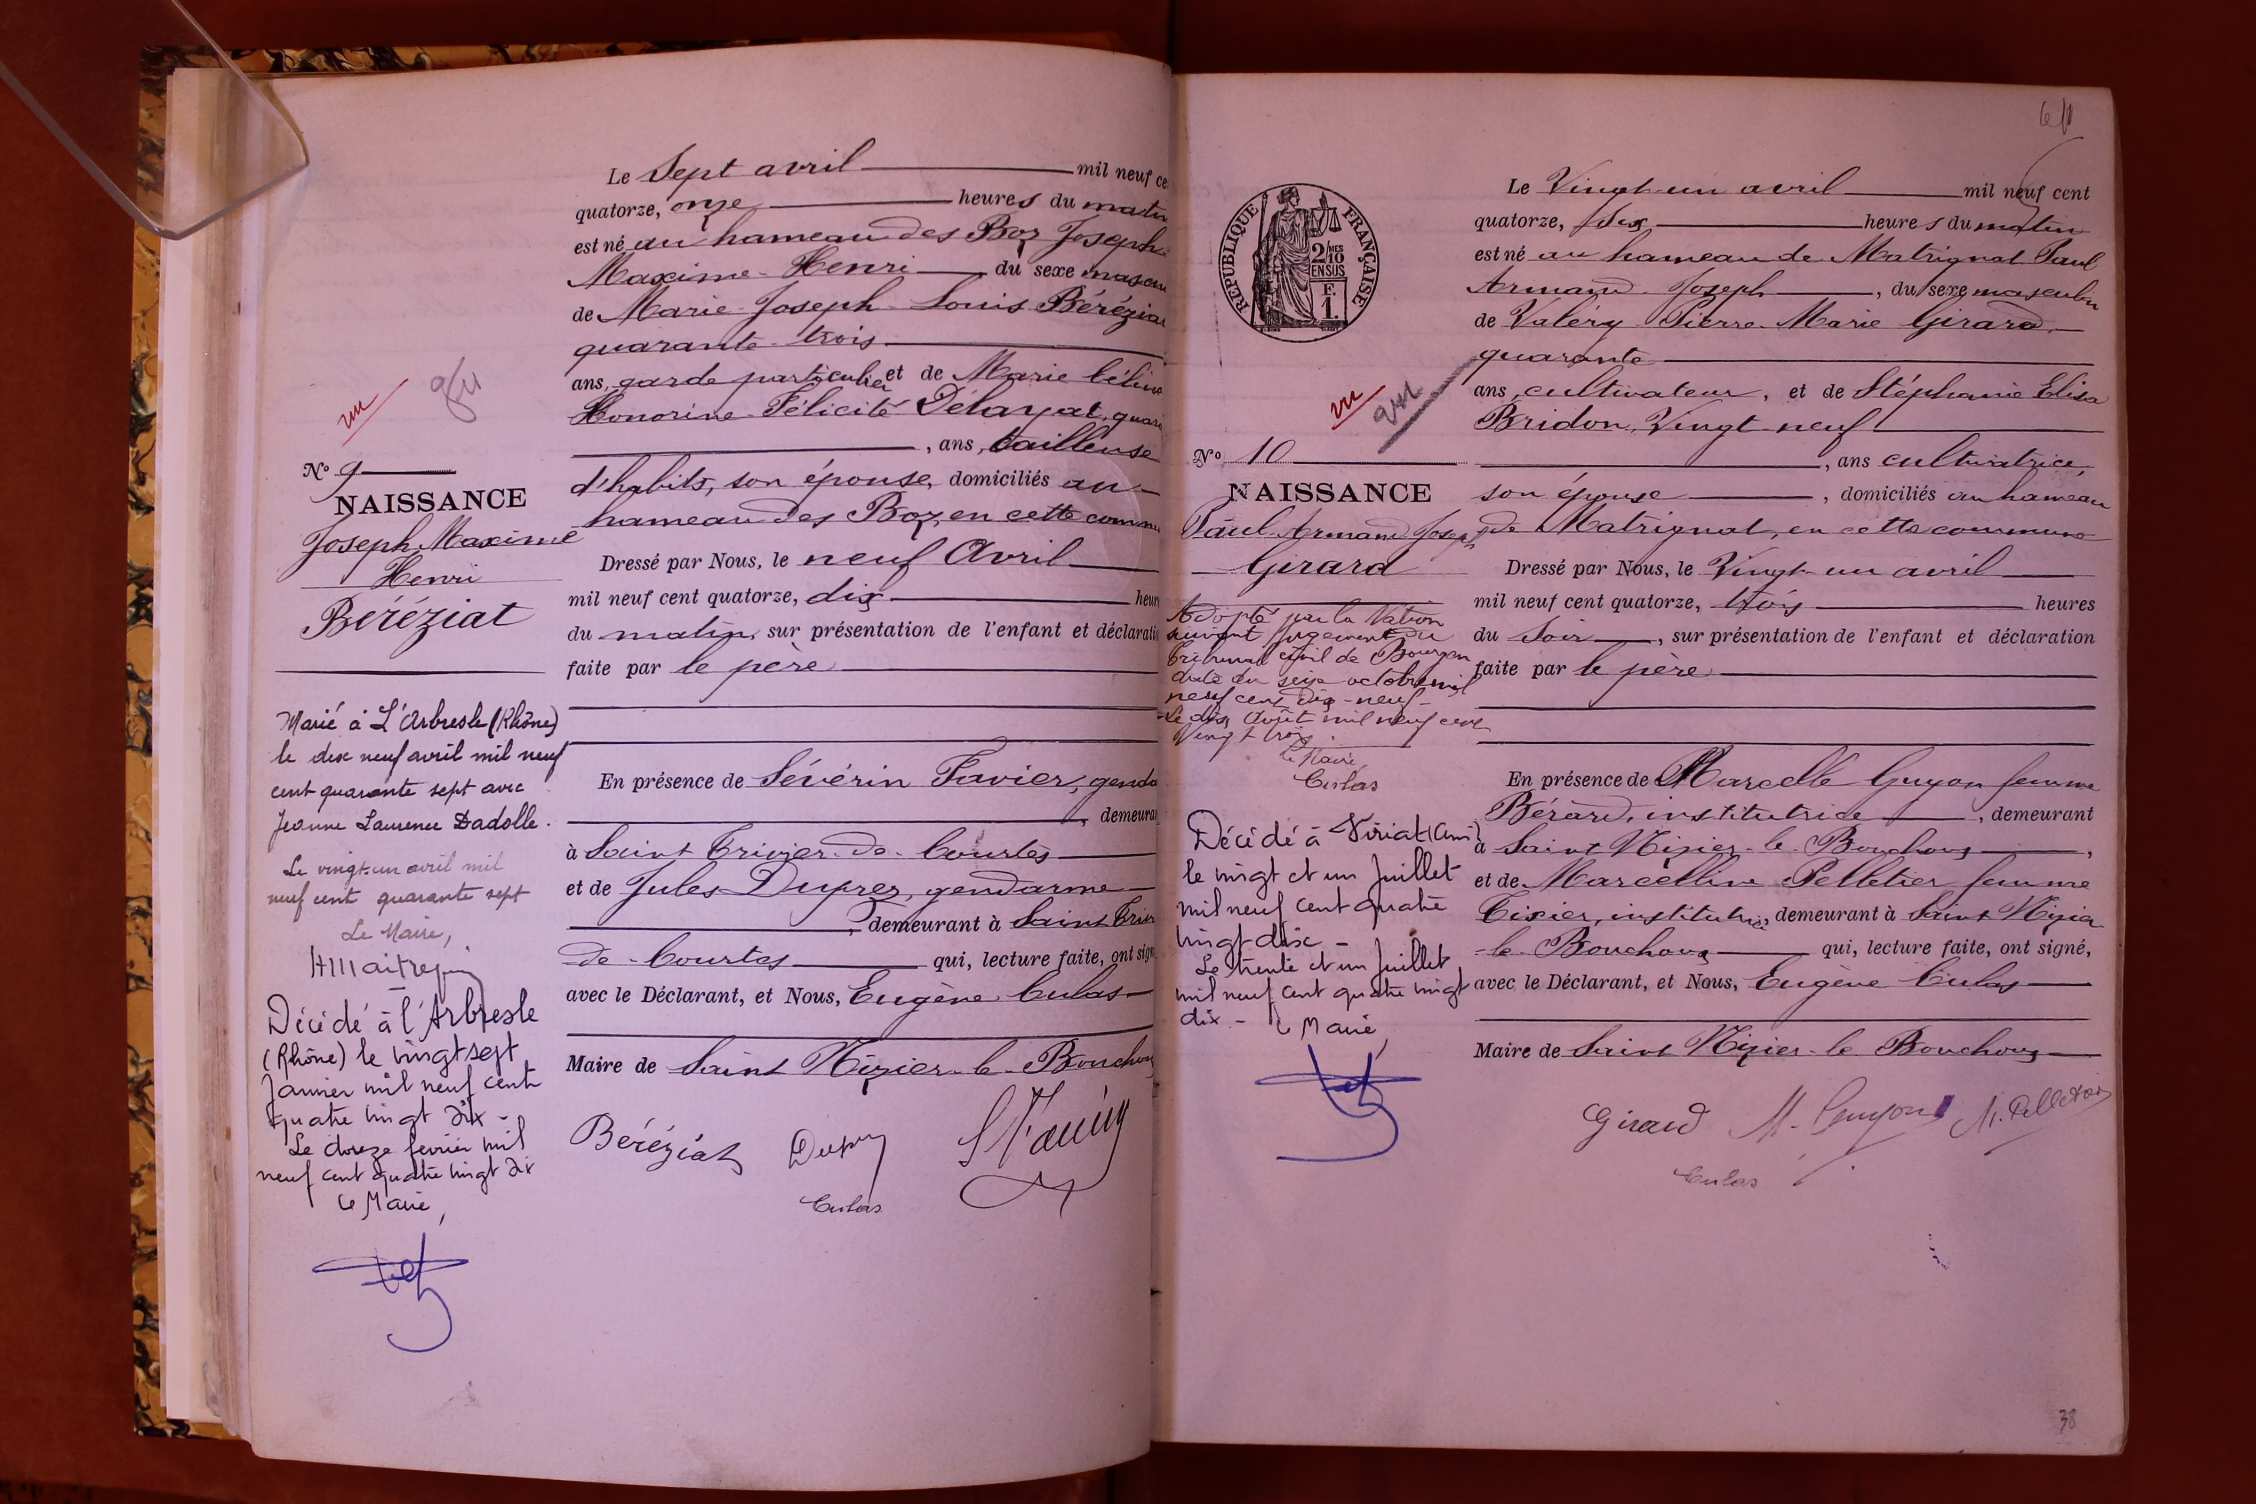 Le Sept avril mil neuf ce
quatorze, onze heures du matin
est né au hameau des Boz Joseph
Maxime-Henri du sexe mascu
de Marie-Joseph-Louis Béréziat
quarante-trois
ans, garde particulier et de Marie Céline
Honorine-Félicité Délayat, quara
, ans, tailleuse
d'habits, son épouse, domiciliés au
hameau des Boz, en cette commu
Dressé par Nous, le neuf Avril
mil neuf cent quatorze, dix heur
du matin, sur présentation de l'enfant et déclaratio
faite par le père
En présence de Sévérin Favier, genda
, demeura
à Saint Trivier-de-Courtes
et de Jules Duprez, gendarme
, demeurant à Saint Trivi
de-Courtes qui, lecture faite, ont sign
avec le Déclarant, et Nous, Eugène Culas
Maire de Saint Nizier-le-Bouchoux
Béréziat Duprez S Favier
Culas
vu
N° 9
NAISSANCE
Joseph Maxime
Henri
Béréziat
Marié à L'Arbresle (Rhône)
le dix neuf avril mil neuf
cent quarante sept avec
Jeanne Laurence Dadolle.
Le vingt-un avril mil
neuf cent quarante sept
Le Maire,
Décédé à l'Arbresle
(Rhône) le vingt sept
Janvier mil neuf cent
quatre vingt dix -
Le douze février mil
neuf cent quatre vingt dix
Le Maire,
REPUBLIQUE FRANÇAISE
2/10 MES
EN SUS
F.
1.
vu
N° 10
NAISSANCE
Paul-Armand Joseph
Girard
Adopté par la Nation
suivant jugement du
tribunal civil de Bourg en
date du seize octobre mil
neuf cent dix-neuf-
Le dix Août mil neuf cent
vingt trois
Le Maire
Culas
Décédé à Viriat (Ain)
le vingt et un Juillet
mil neuf cent quatre
vingt dix -
Le trente et un Juillet
mil neuf cent quatre vingt
dix - Le Maire,
Le Vingt-un avril mil neuf cent
quatorze, dix heures du matin
est né au hameau de Matrignat Paul
Armand-Joseph, du sexe masculin
de Valéry-Pierre-Marie Girard,
quarante
ans, cultivateur, et de Stéphanie Elisa
Bridon, Vingt-neuf
, ans cultivatrice,
son épouse, domiciliés au hameau
de Matrignat, en cette commune
Dressé par Nous, le Vingt-un avril
mil neuf cent quatorze, trois heures
du Soir, sur présentation de l'enfant et déclaration
faite par le père
En présence de Marcelle Guyon femme
Bérard, institutrice, demeurant
à Saint Nizier-le-Bouchoux,
et de Marcelline Pelletier femme
Tixier, institutrice, demeurant à Saint Nizier
-le-Bouchoux qui, lecture faite, ont signé,
avec le Déclarant, et Nous, Eugène Culas
Maire de Saint Nizier-le Bouchoux
Girard M. Guyon M. Pelletier
Culas
38